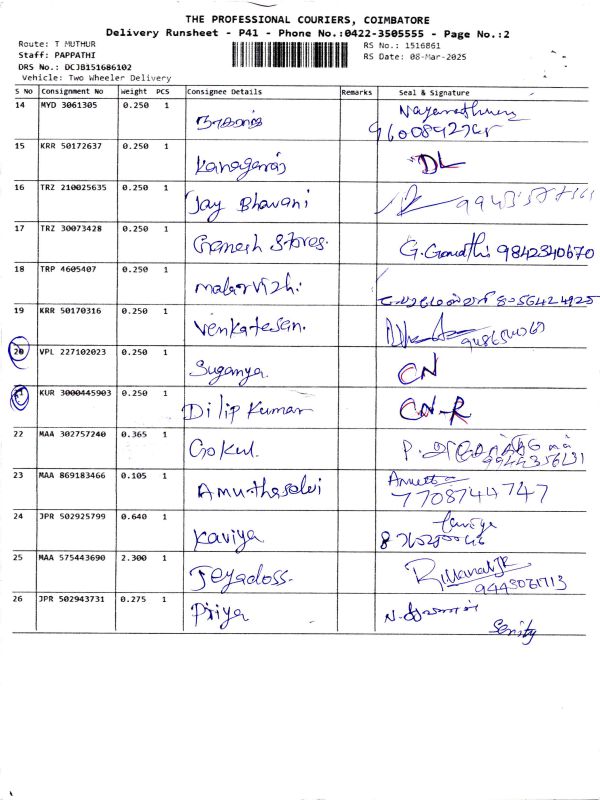 THE PROFESSIONAL COURIERS, COIMBATORE
Delivery Runsheet - P41 - Phone No.:0422-3505555 - Page No.:2
Route: T MUTHUR
Staff: PAPPATHI
DRS No.: DCJB151686102
Vehicle: Two Wheeler Delivery
RS No.: 1516861
RS Date: 08-Mar-2025
S No Consignment No Weight PCS Consignee Details Remarks Seal & Signature
14 MYD 3061305 0.250 1
15 KRR 50172637 0.250 1 Kanagaraj DL
16 TRZ 210025635 0.250 1 Jay Bhavani
17 TRZ 30073428 0.250 1 Ganesh Stores. G. Gomathi 9842340670
18 TRP 4605407 0.250 1 malarvizhi
19 KRR 50170316 0.250 1 Venkatesan.
20 VPL 227102023 0.250 1 Suganya. CN
21 KUR 3000445903 0.250 1 Dilip Kumar CN-R
22 MAA 302757240 0.365 1 Gokul.
23 MAA 869183466 0.105 1 Amurthaselvi 7708744747
24 JPR 502925799 0.640 1 Kaviya.
25 MAA 575443690 2.300 1 Jeyadoss.
26 JPR 502943731 0.275 1 Priya